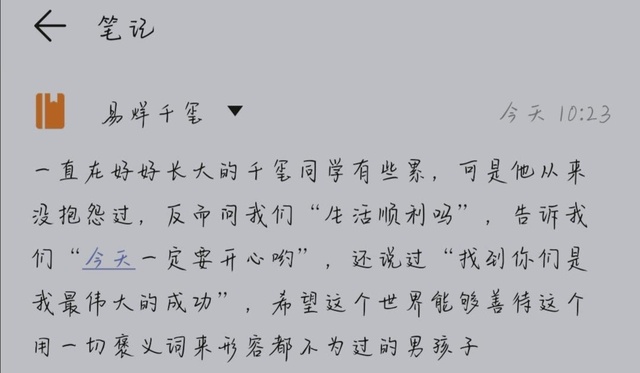 笔记
易烊千玺
今天 10:23
一直在好好长大的千玺同学有些累，可是他从来
没抱怨过，反而问我们“生活顺利吗”，告诉我
们“今天一定要开心哟”，还说过“找到你们是
我最伟大的成功”，希望这个世界能够善待这个
用一切褒义词来形容都不为过的男孩子